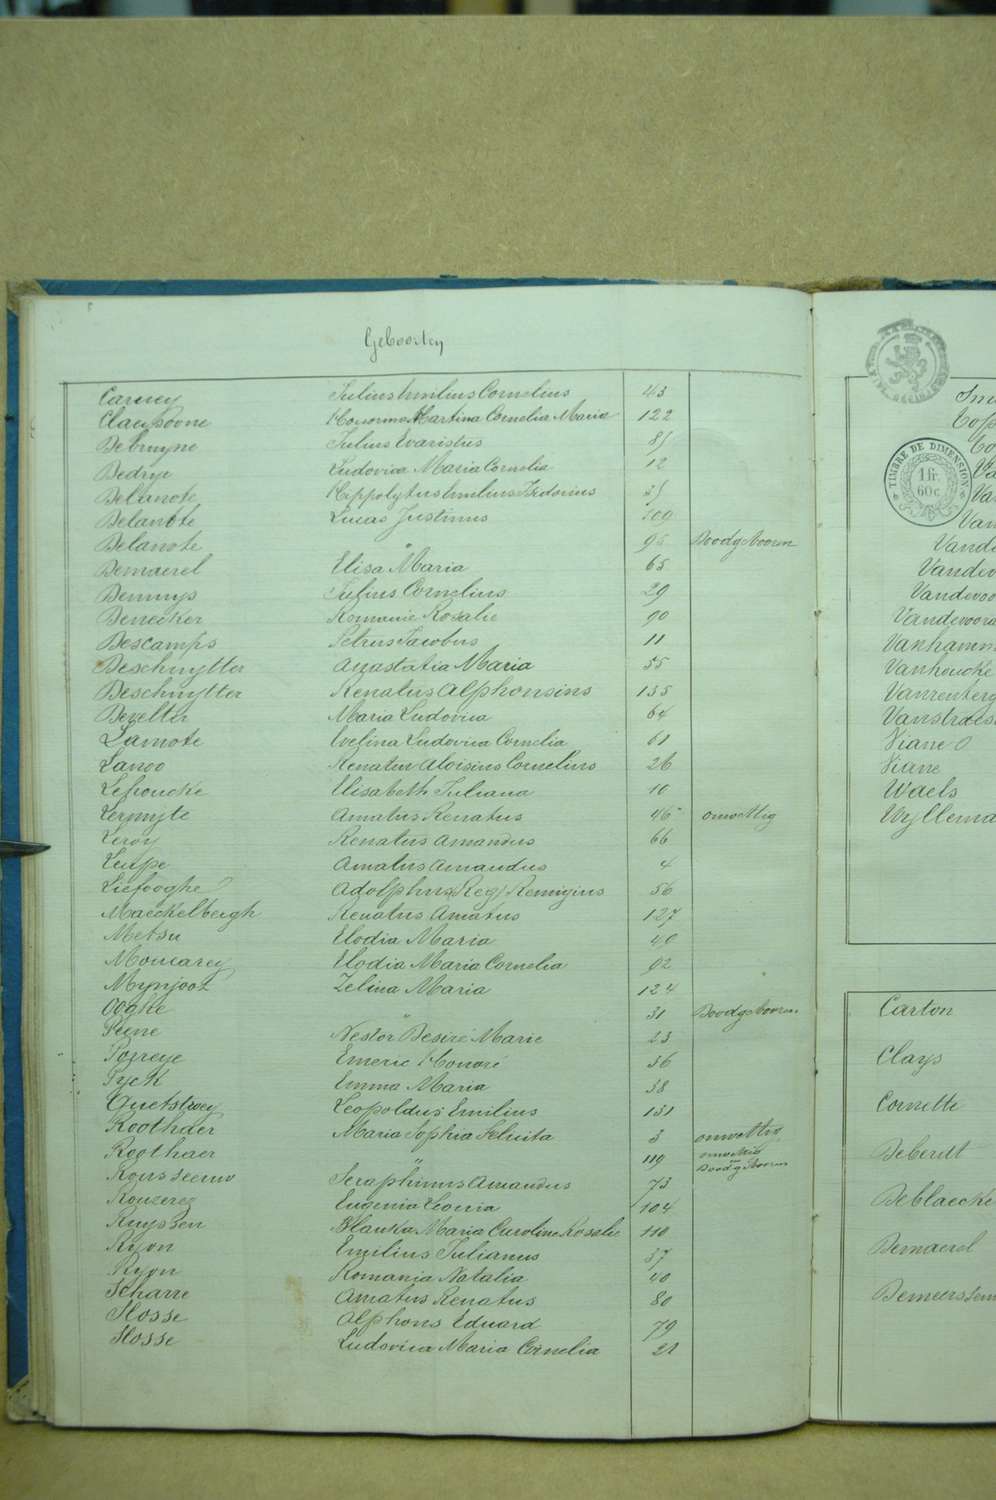 Geboorten
Carney Julius Emilius Cornelius 43
Claepdone Honorina Martina Cornelia Maria 122
Debruyne Julius Evaristus 81
Dedrye Ludovica Maria Cornelia 12
Delanote Hippolytus Emilius Isidorius
Delanote Lucas Justinus 109
Delanote " 95 Doodgeboren
Demaerel Elisa Maria 65
Dennys Julius Cornelius 29
Denecker Romanie Rosalie 90
Descamps Petrus Jacobus 11
Deschuytter Anastatia Maria 55
Deschuytter Renatus Alphonsius 135
Develter Maria Ludovica 64
Lamote Evelina Ludovica Cornelia 61
Lanoo Renatus Aloisius Cornelius 26
Lehoucke Elisabeth Juliana 10
Lermyte Amatus Renatus 46 onwettig
Leroy Renatus Amandus 66
Leupe Amatus Amandus 4
Liefooghe Adolphus Remigius 56
Maeckelbergh Renatus Amatus 127
Metsu Elodia Maria 49
Moucarey Elodia Maria Cornelia 92
Mynjoot Zelina Maria 124
Ooghe " 31 Doodgeboren
Penne Nestor Desiré Marie 23
Porreye Emeric Honoré 36
Pyck Emma Maria 38
Quetstroey Leopoldus Emilius 131
Roothaer Maria Sophia Felicita 3 onwettig
Roothaer " 119 onwettig Doodgeboren
Rousseeuw Seraphinus Amandus 73
Rouzerez Eugenia Leonia 104
Ruyssen Blanka Maria Caroline Rosalie 110
Ryon Emilius Julianus 37
Ryon Romania Natalia 40
Scharre Amatus Renatus 80
Slosse Alphons Eduard 79
Slosse Ludovica Maria Cornelia 21
TIMBRE DE DIMENSION
1 fr.
60 c.
Vanhoucke
Viane
Viane
Waels
Carton
Clays
Cornette
Deberdt
Deblaecke
Demaerel